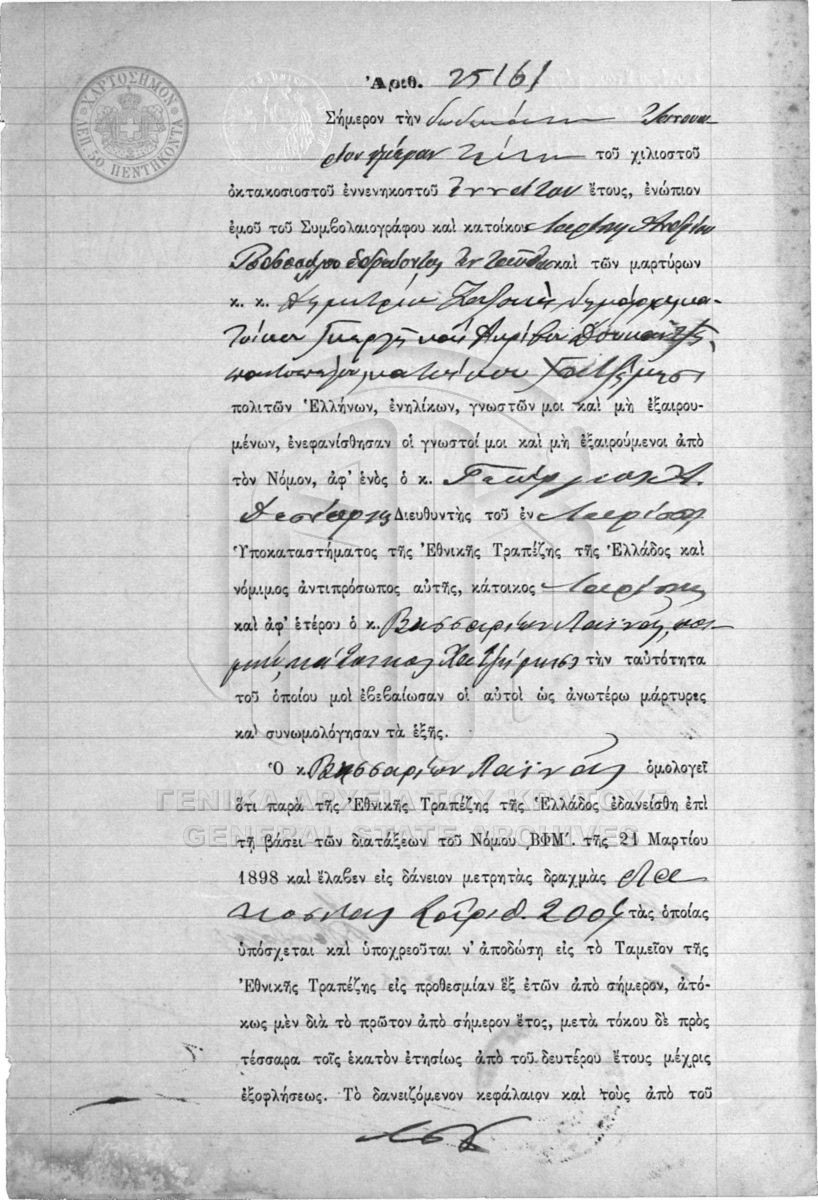 ΧΑΡΤΟΣΗΜΟΝ
ΛΕΠ. 50 ΠΕΝΤΗΚΟΝΤΑ
Ἀριθ. 25161
Σήμερον τὴν δωδεκάτην Ἰαννουα-
ρίου ἡμέραν τρίτην τοῦ χιλιοστοῦ
ὀκτακοσιοστοῦ ἐννενηκοστοῦ ἐννάτου ἔτους, ἐνώπιον
ἐμοῦ τοῦ Συμβολαιογράφου καὶ κατοίκου Λαρίσης Ἀνδρέου
Ροδοπούλου ἑδρεύοντος ἐνταῦθα καὶ τῶν μαρτύρων
κ. κ. Δημητρίου
κατοίκου
πολιτῶν Ἑλλήνων, ἐνηλίκων, γνωστῶν μοι καὶ μὴ ἐξαιρου-
μένων, ἐνεφανίσθησαν οἱ γνωστοί μοι καὶ μὴ ἐξαιρούμενοι ἀπὸ
τὸν Νόμον, ἀφ' ἑνὸς ὁ κ. Γεώργιος Α.
Διευθυντὴς τοῦ ἐν Λαρίσσῃ
Ὑποκαταστήματος τῆς Ἐθνικῆς Τραπέζης τῆς Ἑλλάδος καὶ
νόμιμος ἀντιπρόσωπος αὐτῆς, κάτοικος Λαρίσης
καὶ ἀφ' ἑτέρου ὁ κ. Βησσαρίων Λαϊνᾶς, ποι-
μήν, κάτοικος τὴν ταὐτότητα
τοῦ ὁποίου μοὶ ἐβεβαίωσαν οἱ αὐτοὶ ὡς ἀνωτέρω μάρτυρες
καὶ συνωμολόγησαν τὰ ἑξῆς.
Ὁ κ. Βησσαρίων Λαϊνᾶς ὁμολογεῖ
ΓΕΝΙΚΑ ΑΡΧΕΙΑ ΤΟΥ ΚΡΑΤΟΥΣ
ὅτι παρὰ τῆς Ἐθνικῆς Τραπέζης τῆς Ἑλλάδος ἐδανείσθη ἐπὶ
GENERAL STATE ARCHIVES
τῇ βάσει τῶν διατάξεων τοῦ Νόμου ͵ΒΦΜ΄. τῆς 21 Μαρτίου
1898 καὶ ἔλαβεν εἰς δάνειον μετρητὰς δραχμὰς δια-
κοσίας ἀριθ. 200 τὰς ὁποίας
ὑπόσχεται καὶ ὑποχρεοῦται ν' ἀποδώσῃ εἰς τὸ Ταμεῖον τῆς
Ἐθνικῆς Τραπέζης εἰς προθεσμίαν ἓξ ἐτῶν ἀπὸ σήμερον, ἀτό-
κως μὲν διὰ τὸ πρῶτον ἀπὸ σήμερον ἔτος, μετὰ τόκου δὲ πρὸς
τέσσαρα τοῖς ἑκατὸν ἐτησίως ἀπὸ τοῦ δευτέρου ἔτους μέχρις
ἐξοφλήσεως. Τὸ δανειζόμενον κεφάλαιον καὶ τοὺς ἀπὸ τοῦ